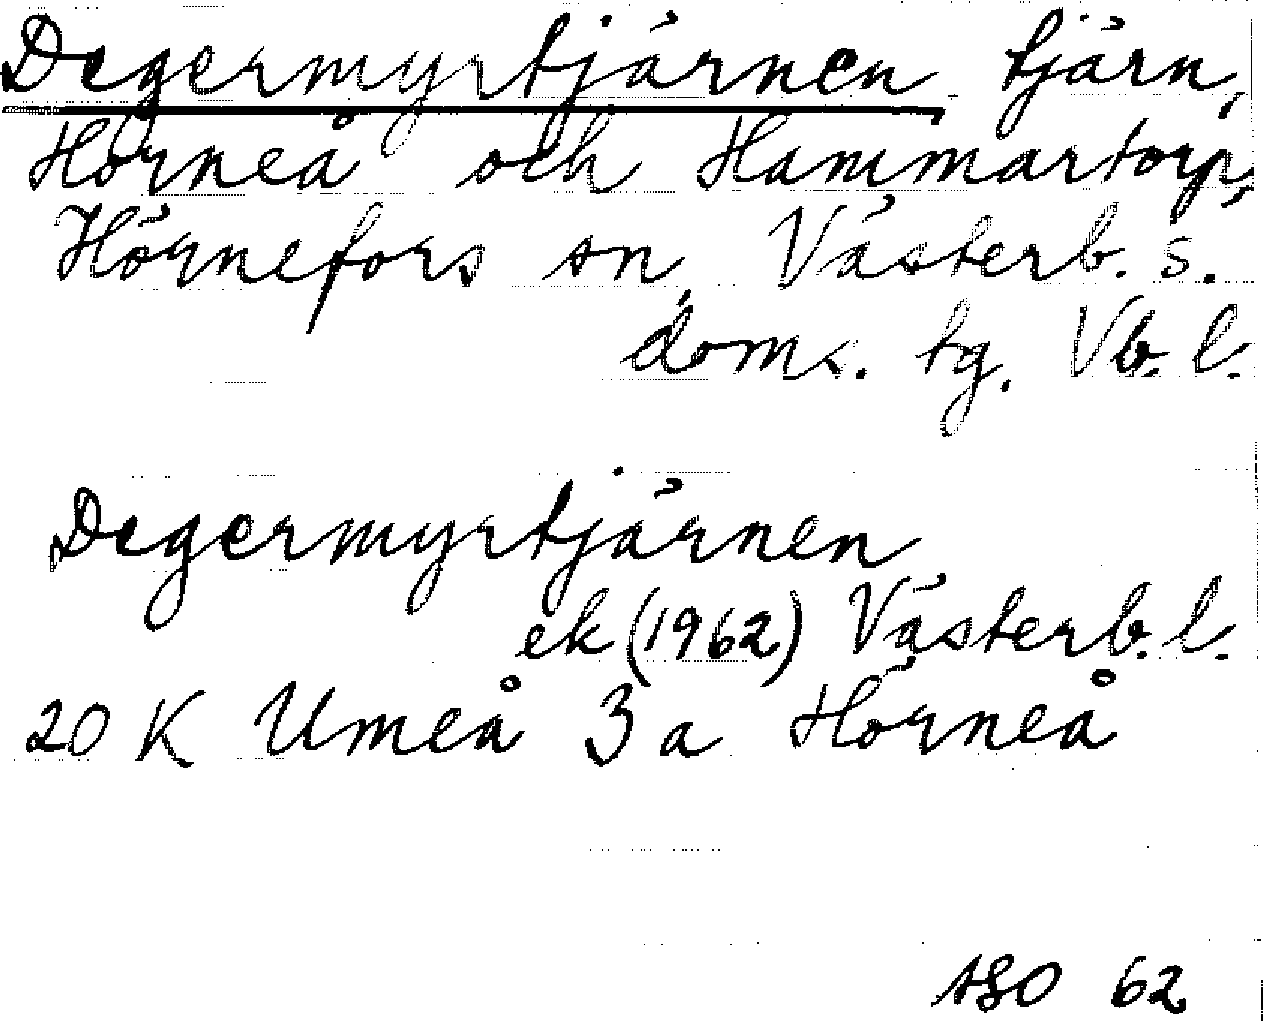 Degermyrtjärnen tjärn,
Hörneå och Hammartorp,
Hörnefors sn, Västerb. s.
doms. tg. Vb. l.
Degermyrtjärnen
ek (1962) Västerb. l.
20 K Umeå 3 a Hörneå
62